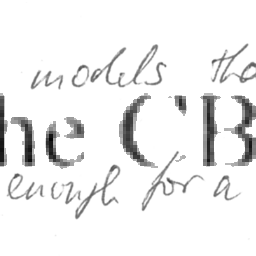 models tha
he CB
enough for a